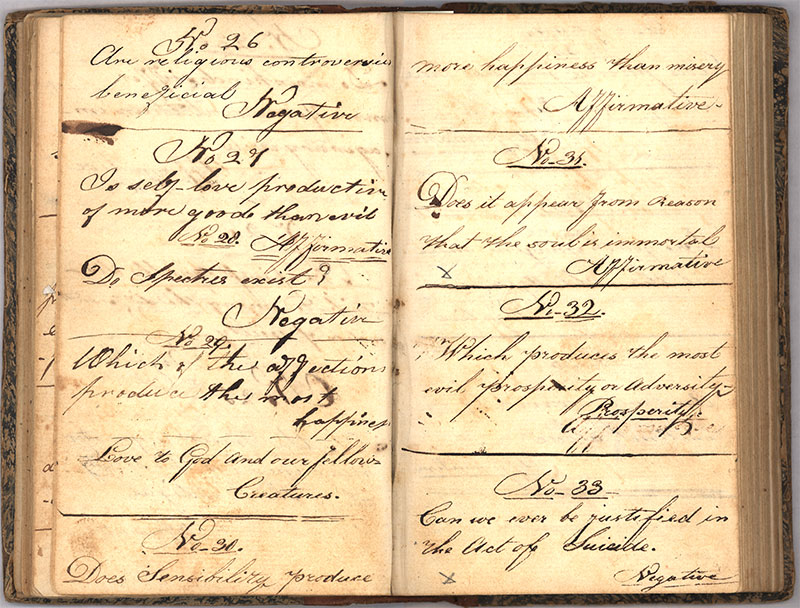 No 26
Are religious controversies
beneficial
Negative
No 27
Is self-love productive
of more goods than evil
No 28. Affirmative
Do Spectres exist?
Negative
No 29.
Which of the affections
produce the most
happines
Love to God and our fellow-
Creatures.
No- 30.
Does Sensibility produce
more happiness than misery
Affirmative-
No- 31.
Does it appear from reason
that the soul is immortal
Affirmative
No- 32.
Which produces the most
evil prosperity or adversity-
Prosperity.
No- 33
Can we ever be justified in
the Act of Suicide.
Negative